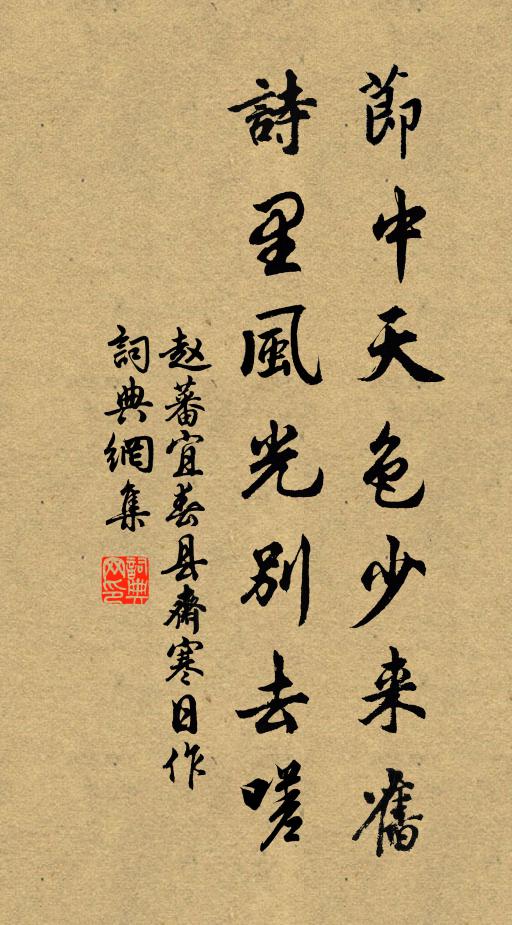 節中天色少来舊
詩里風光別去嗟
赵蕃宜春县齋寒日作
詞典網集
詞典网印